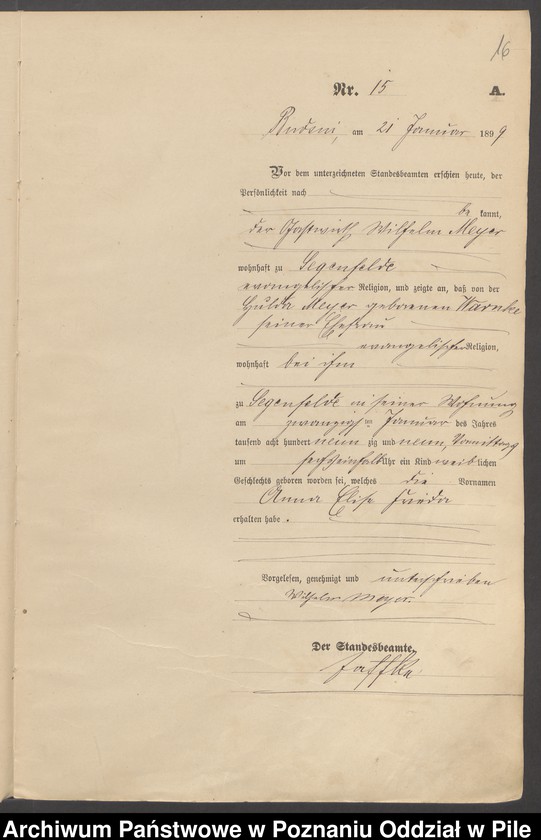 16
Nr. 15
A.
am 21 Januar 1899
Vor dem unterzeichneten Standesbeamten erschien heute, der
Persönlichkeit nach
be kannt,
der Gastwirth Wilhelm Meyer
wohnhaft zu Segenfelde
evangelischer Religion, und zeigte an, daß von der
Hulda Meyer geborenen Warnke
seiner Ehefrau
evangelischer Religion,
wohnhaft bei ihm
zu Segenfelde in seiner Wohnung
am zwanzigsten Januar des Jahres
tausend acht hundert neun zig und neun, Vormittags
um Uhr ein Kind weib lichen
Geschlechts geboren worden sei, welches die Vornamen
Anna Elise Frieda
erhalten habe.
Vorgelesen, genehmigt und unterschrieben
Wilhelm Meyer.
Der Standesbeamte.
Archiwum Państwowe w Poznaniu Oddział w Pile